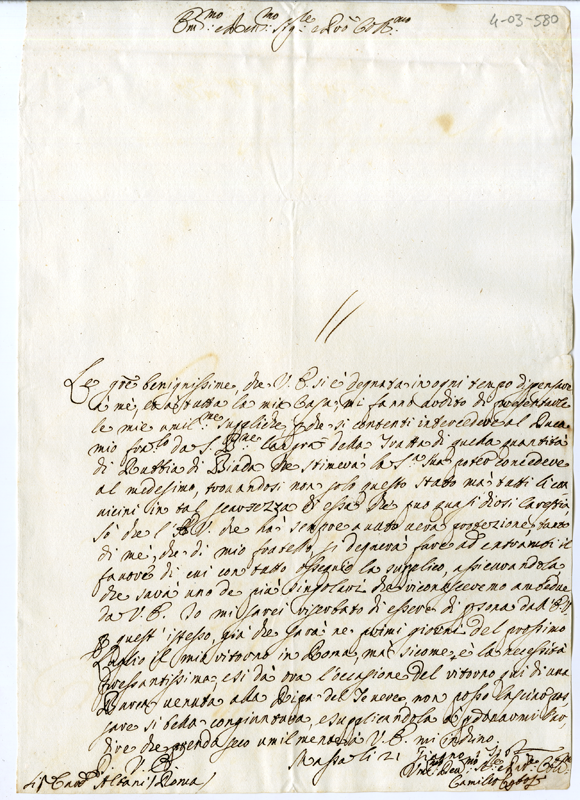 4-03-580
Em.mo e Rev.mo Sig.re e Pro.n Col.mo
Le gr.e benignissime, che V. E. si è degnata in ogni tempo dispensare
à mè, e à tutta la mia Casa, mi fanno ardito di presentarle
le mie umil.me suppliche, che si contenti intercedere al Duca
mio fra.llo da S. B.ne la gra della Tratta di quella quantità
di Rubbia di Biada che stimerà la S.tà Sua poter concedere
al medesimo, trovandosi non solo questo Stato ma tutti li con
vicini in tal scarsezza di essa che può quasi dirsi carestia
Sò che l'E. V. che hà sempre avuto vera protezione, tanto
di mè, che di mio fratello, si degnerà fare ad entrambi il
favore di cui con tutto ossequio la supplico, assicurandola
che sarà uno de più singolari che riconosceremo ambedue
da V. E. Io mi sarei riserbato di essere di psona dall'E. V.
p quest'istesso, già che sarà ne primi giorni del prossimo
Luglio il mio ritorno in Roma, mà sicome è la necessità
pressantissima, e si dà ora l'occasione del ritorno quì di una
Barca venuta alla Ripa del Tevere non posso lasciar pas
sare sì bella congiuntura, e supplicandola à perdonarmi l'ar
dire che prendo seco umilmente à V. E. mi inchino.
Di V. E. Massa li 21 Giugno
S.r Card. Albani / Roma
Um.o Dev.mo
Camillo Cybo